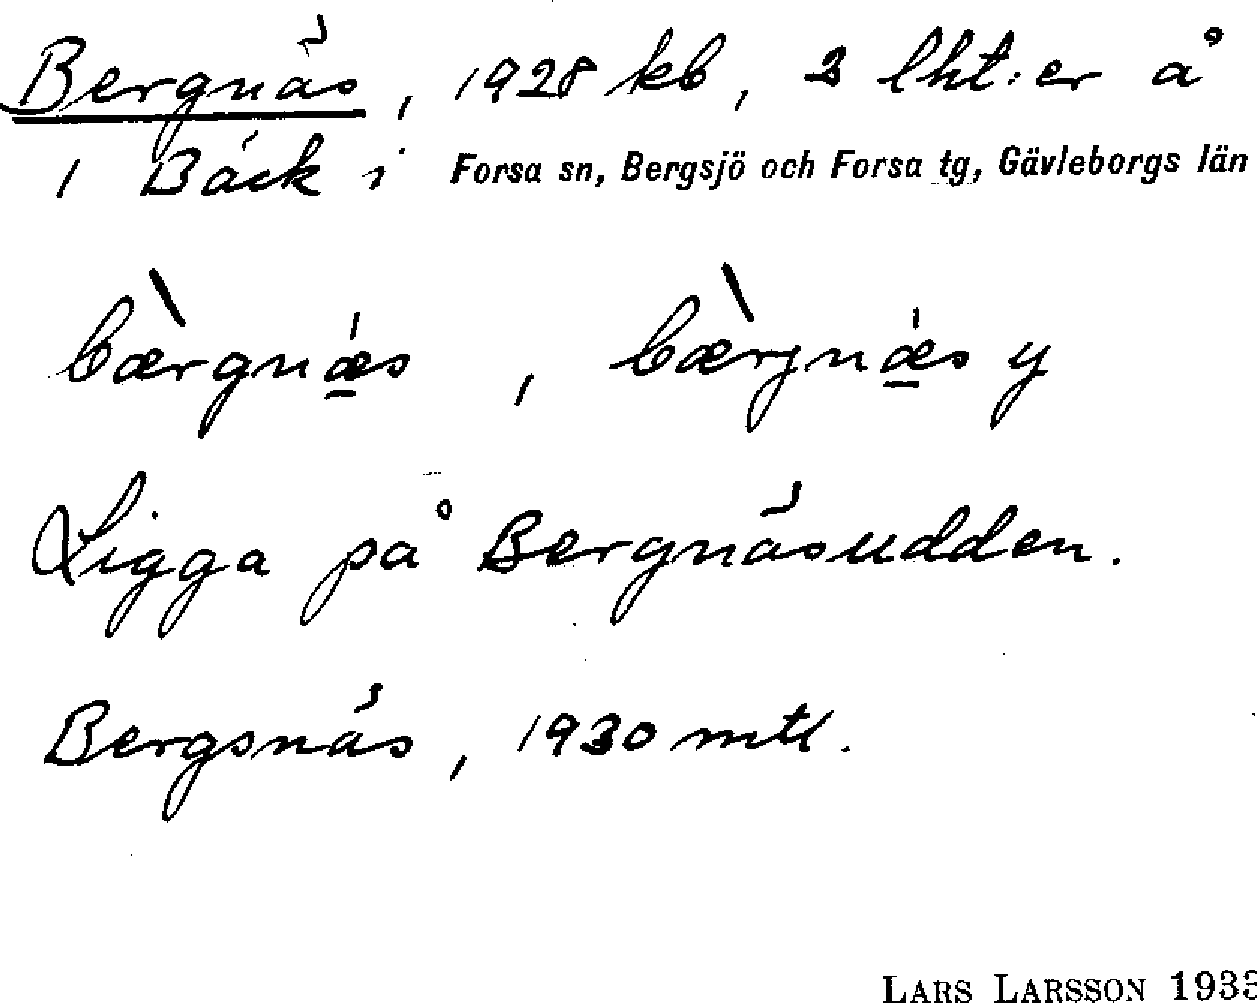 Bergnäs, 1928 kb, 2 lht:er å
1 Bäck i Forsa sn, Bergsjö och Forsa tg, Gävleborgs län
bæ̀rgnǽ̠s, bæ̀rjnǽ̠s y
Ligga på Bergnäsudden.
Bergsnäs, 1930 mtl.
LARS LARSSON 1933